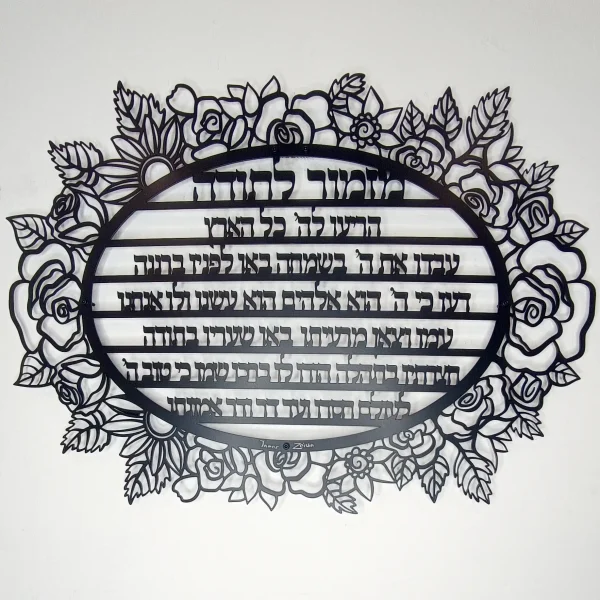 מזמור לתודה
הריעו לה' כל הארץ
עבדו את ה' בשמחה באו לפניו ברננה
דעו כי ה' הוא אלהים הוא עשנו ולו אנחנו
עמו וצאן מרעיתו באו שעריו בתודה
חצרתיו בתהלה הודו לו ברכו שמו כי טוב ה'
לעולם חסדו ועד דר ודר אמונתו